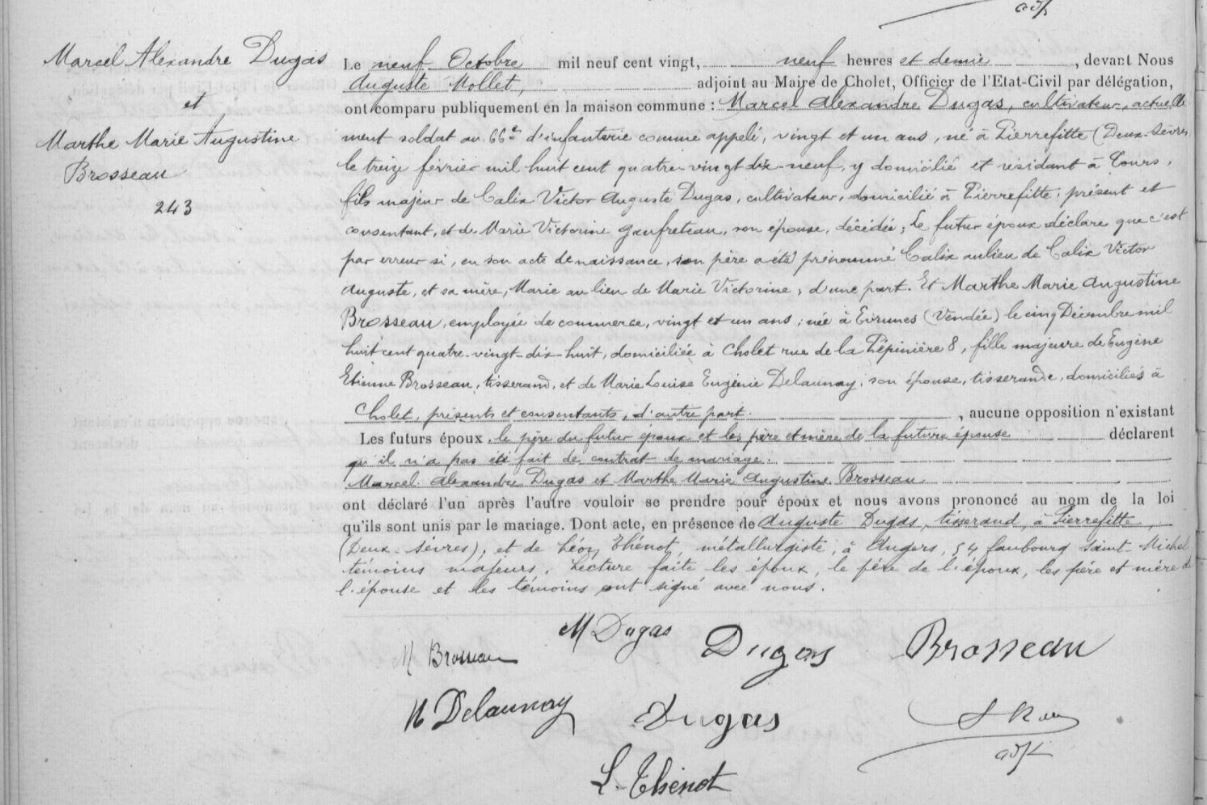 adj.
Marcel Alexandre Dugas
et
Marthe Marie Augustine
Brosseau
243
Le neuf Octobre mil neuf cent vingt, neuf heures et demie, devant Nous
Auguste Mollet, adjoint au Maire de Cholet, Officier de l'Etat-Civil par délégation,
ont comparu publiquement en la maison commune : Marcel Alexandre Dugas, cultivateur, actuelle
ment soldat au 66e d'infanterie comme appelé, vingt et un ans, né à Pierrefitte (Deux-Sèvres
le treize février mil huit cent quatre-vingt dix-neuf, y domicilié et résidant à Tours,
fils majeur de Calix Victor Auguste Dugas, cultivateur, domicilié à Pierrefitte, présent et
consentant, et de Marie Victorine Gaufreteau, son épouse, décédée; Le futur époux déclare que c'est
par erreur si, en son acte de naissance, son père a été prénommé Calix au lieu de Calix Victor
Auguste, et sa mère, Marie au lieu de Marie Victorine; d'une part. Et Marthe Marie Augustine
Brosseau, employée de commerce, vingt et un ans, née à Evrunes (Vendée) le cinq Décembre mil
huit cent quatre-vingt-dix-huit, domiciliée à Cholet rue de la Pépinière 8, fille majeure de Eugène
Etienne Brosseau, tisserand, et de Marie Louise Eugénie Delaunay, son épouse, tisserande, domiciliés à
Cholet, présents et consentants, d'autre part. , aucune opposition n'existant
Les futurs époux, le père du futur époux et les père et mère de la future épouse déclarent
qu'il n'a pas été fait de contrat de mariage.
Marcel Alexandre Dugas et Marthe Marie Augustine Brosseau
ont déclaré l'un après l'autre vouloir se prendre pour époux et nous avons prononcé au nom de la loi
qu'ils sont unis par le mariage. Dont acte, en présence de Auguste Dugas, tisserand, à Pierrefitte,
(Deux-Sèvres), et de Léon Thénot, métallurgiste, à Angers, 54 faubourg Saint-Michel
témoins majeurs. Lecture faite les époux, le père de l'époux, les père et mère de
l'épouse et les témoins ont signé avec nous.
M Dugas Dugas Brosseau
M Brosseau
M Delaunay Dugas
adj.
L. Thénot